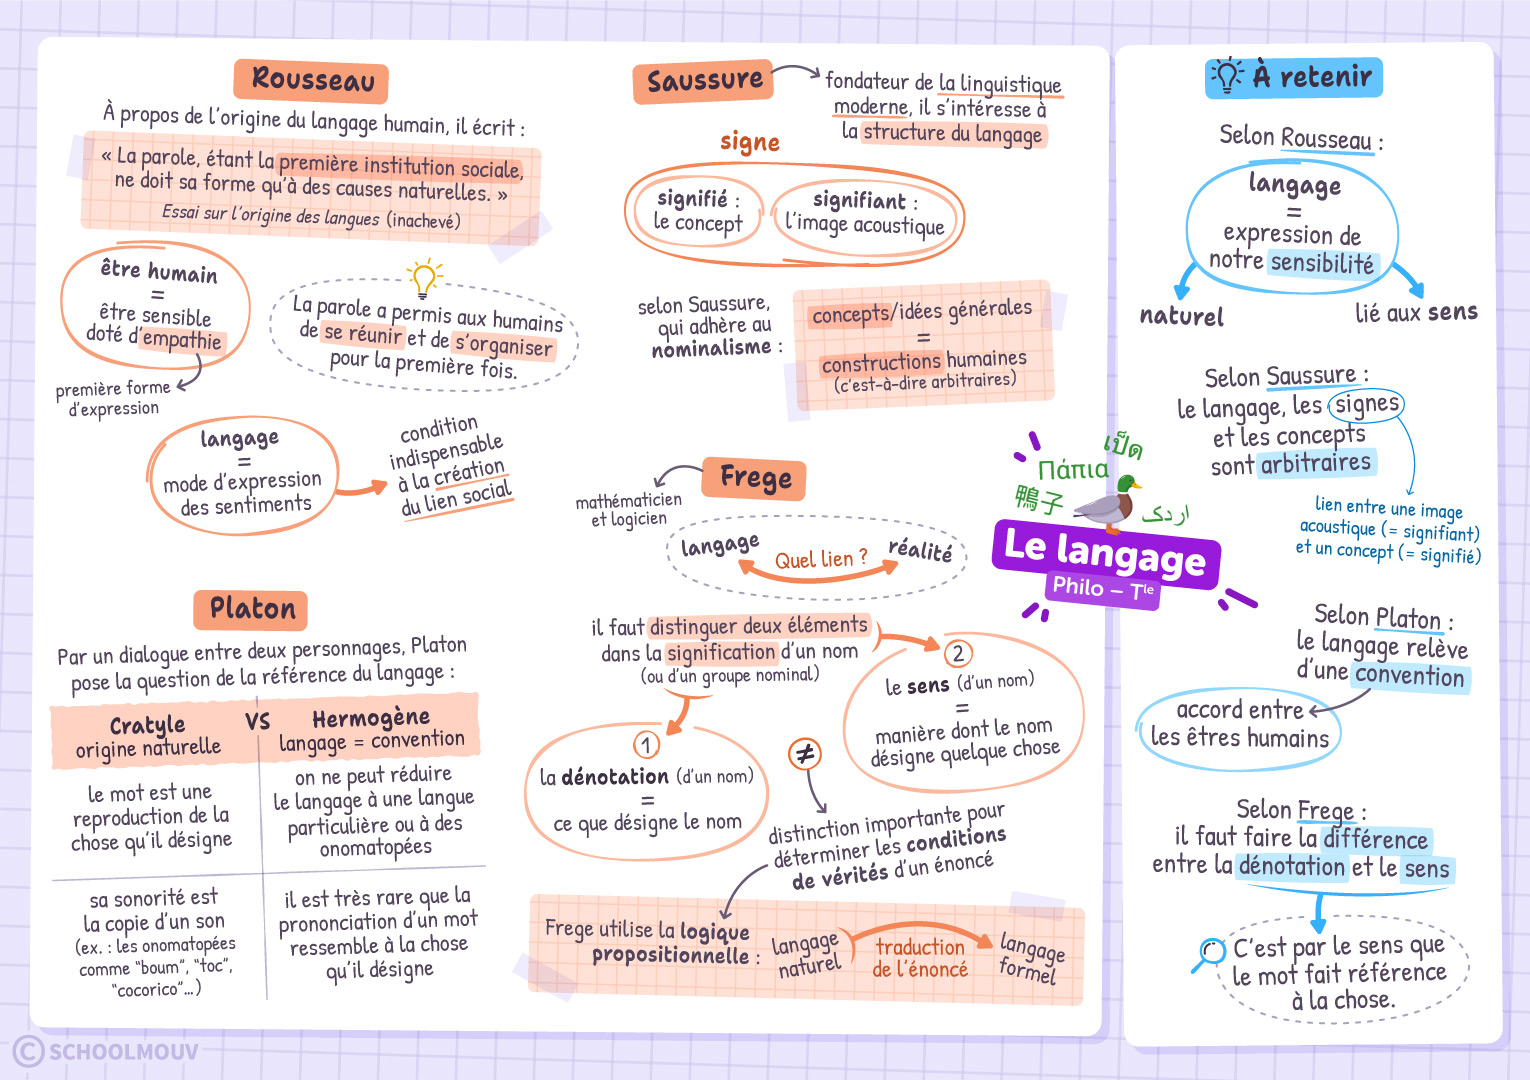 Rousseau
À propos de l'origine du langage humain, il écrit :
« La parole, étant la première institution sociale,
ne doit sa forme qu'à des causes naturelles. »
Essai sur l'origine des langues (inachevé)
être humain
=
être sensible
doté d'empathie
première forme
d'expression
La parole a permis aux humains
de se réunir et de s'organiser
pour la première fois.
langage
=
mode d'expression
des sentiments
condition
indispensable
à la création
du lien social
Platon
Par un dialogue entre deux personnages, Platon
pose la question de la référence du langage :
Cratyle
origine naturelle
VS
Hermogène
langage = convention
le mot est une
reproduction de la
chose qu'il désigne
on ne peut réduire
le langage à une langue
particulière ou à des
onomatopées
sa sonorité est
la copie d'un son
(ex. : les onomatopées
comme "boum", "toc",
"cocorico"...)
il est très rare que la
prononciation d'un mot
ressemble à la chose
qu'il désigne
Saussure
fondateur de la linguistique
moderne, il s'intéresse à
la structure du langage
signe
signifié :
le concept
signifiant :
l'image acoustique
selon Saussure,
qui adhère au
nominalisme :
concepts/idées générales
=
constructions humaines
(c'est-à-dire arbitraires)
Frege
mathématicien
et logicien
langage
Quel lien ?
réalité
il faut distinguer deux éléments
dans la signification d'un nom
(ou d'un groupe nominal)
1
la dénotation (d'un nom)
=
ce que désigne le nom
2
le sens (d'un nom)
=
manière dont le nom
désigne quelque chose
≠
distinction importante pour
déterminer les conditions
de vérités d'un énoncé
Frege utilise la logique
propositionnelle :
langage
naturel
traduction
de l'énoncé
langage
formel
เป็ด
Πάπια
鴨子
اردک
Le langage
Philo – Tle
À retenir
Selon Rousseau :
langage
=
expression de
notre sensibilité
naturel
lié aux sens
Selon Saussure :
le langage, les signes
et les concepts
sont arbitraires
lien entre une image
acoustique (= signifiant)
et un concept (= signifié)
Selon Platon :
le langage relève
d'une convention
accord entre
les êtres humains
Selon Frege :
il faut faire la différence
entre la dénotation et le sens
C'est par le sens que
le mot fait référence
à la chose.
© SCHOOLMOUV